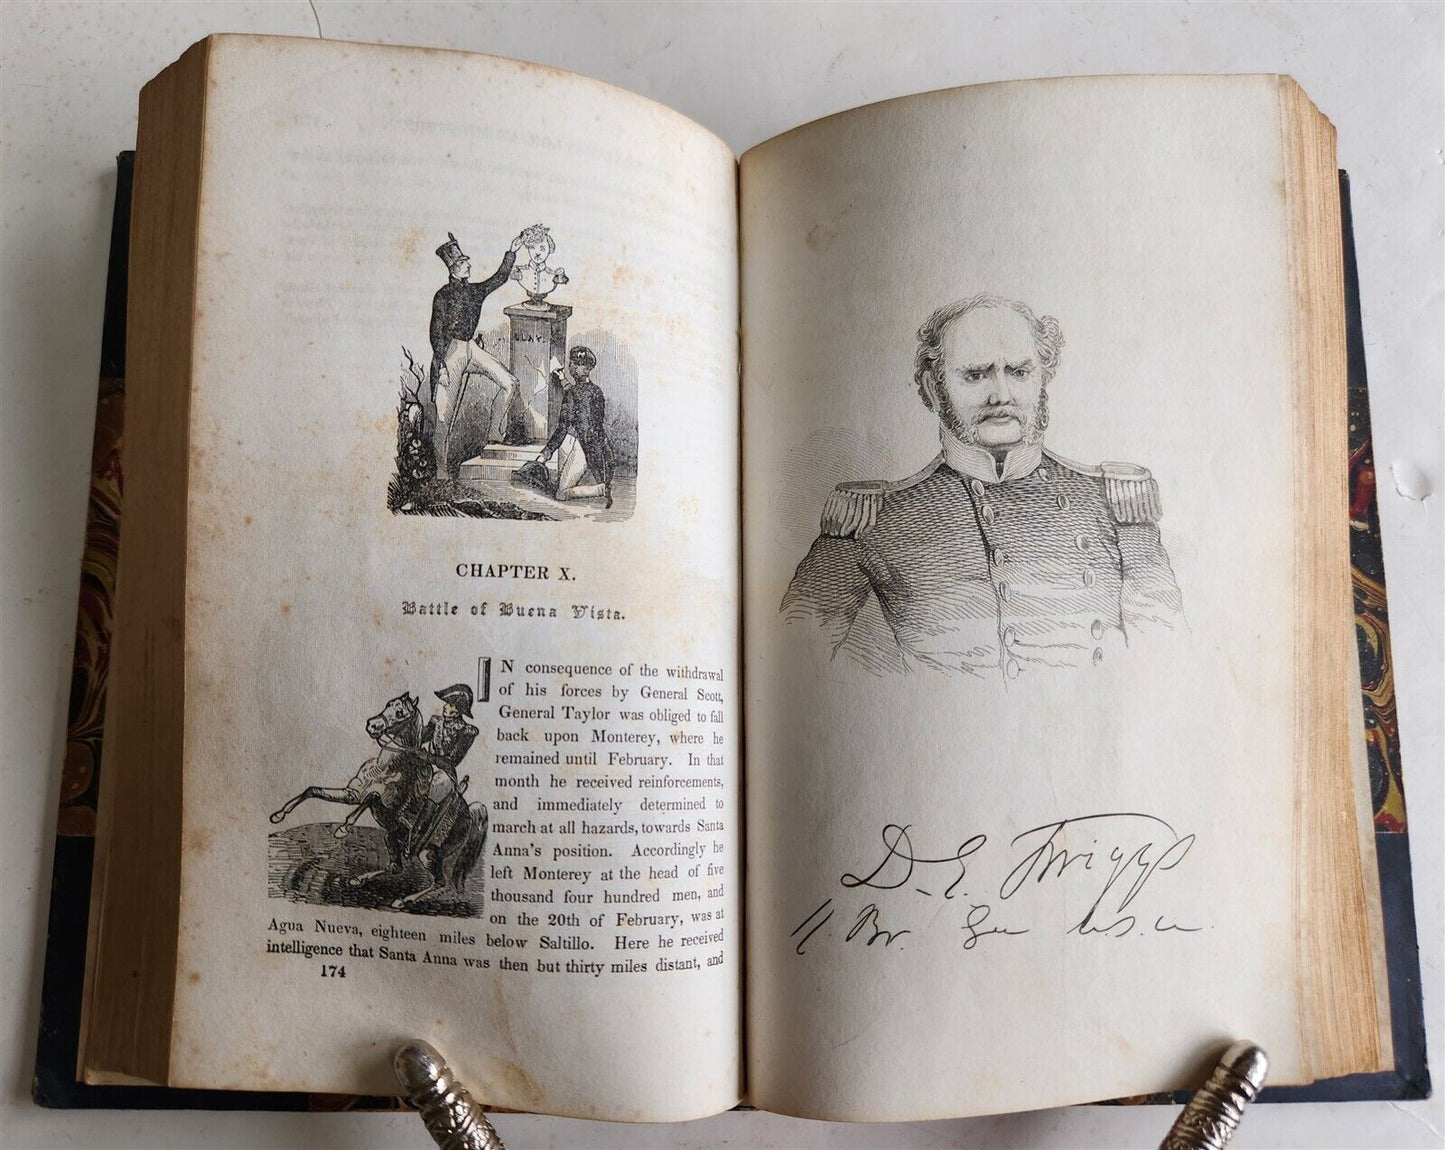 CLAY.
CHAPTER X.
Battle of Buena Vista.
IN consequence of the withdrawal
of his forces by General Scott,
General Taylor was obliged to fall
back upon Monterey, where he
remained until February. In that
month he received reinforcements,
and immediately determined to
march at all hazards, towards Santa
Anna's position. Accordingly he
left Monterey at the head of five
thousand four hundred men, and
on the 20th of February, was at
Agua Nueva, eighteen miles below Saltillo. Here he received
intelligence that Santa Anna was then but thirty miles distant, and
174
D. E. Twiggs
Br. Gen U.S.A.